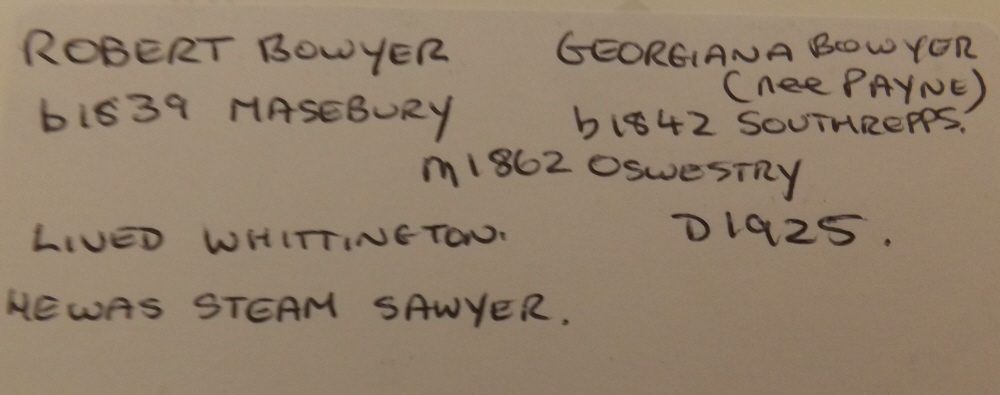 ROBERT BOWYER GEORGIANA BOWYER
(nee PAYNE)
b1839 MASEBURY b1842 SOUTHREPPS.
m1862 OSWESTRY
LIVED WHITTINGTON. D1925.
HE WAS STEAM SAWYER.